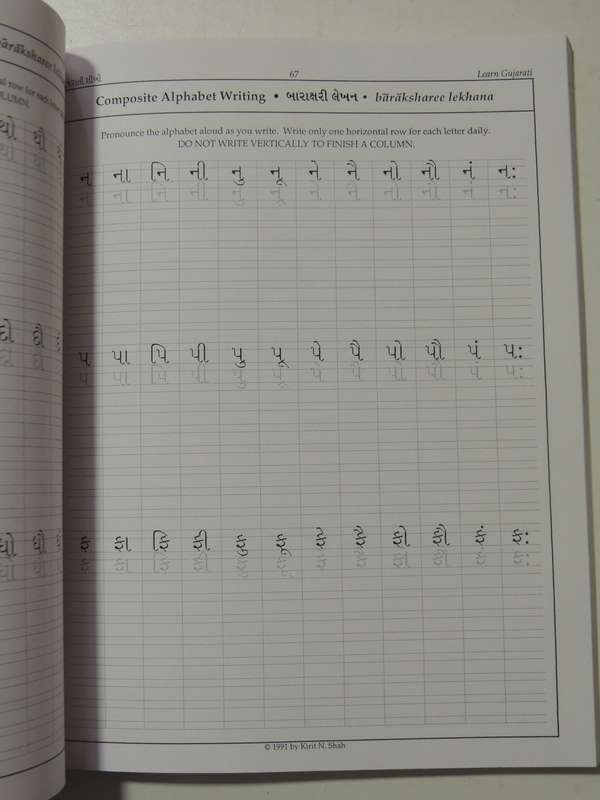 67
Learn Gujarati
Composite Alphabet Writing • બારાક્ષરી લેખન • bārāksharee lekhana
Pronounce the alphabet aloud as you write. Write only one horizontal row for each letter daily.
DO NOT WRITE VERTICALLY TO FINISH A COLUMN.
ન ના નિ ની નુ નૂ ને નૈ નો નૌ નં નઃ
ન ના નિ ની નુ નૂ ને નૈ નો નૌ નં નઃ
પ પા પિ પી પુ પૂ પે પૈ પો પૌ પં પઃ
પ પા પિ પી પુ પૂ પે પૈ પો પૌ પં પઃ
ફ ફા ફિ ફી ફુ ફૂ ફે ફૈ ફો ફૌ ફં ફઃ
ફ ફા ફિ ફી ફુ ફૂ ફે ફૈ ફો ફૌ ફં ફઃ
© 1991 by Kirit N. Shah